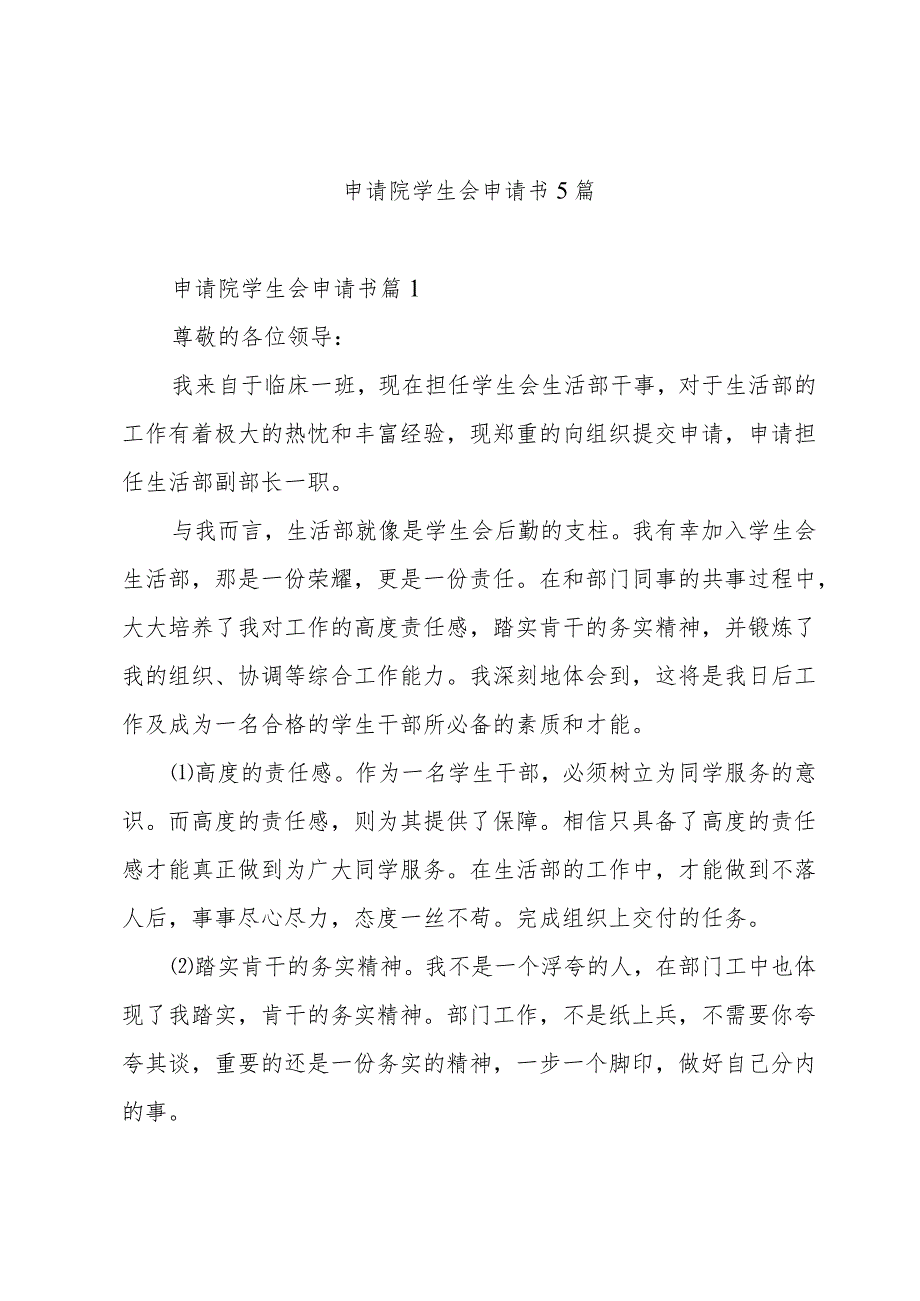 申请院学生会申请书 5 篇
申请院学生会申请书篇 1
尊敬的各位领导：
我来自于临床一班，现在担任学生会生活部干事，对于生活部的
工作有着极大的热忱和丰富经验，现郑重的向组织提交申请，申请担
任生活部副部长一职。
与我而言，生活部就像是学生会后勤的支柱。我有幸加入学生会
生活部，那是一份荣耀，更是一份责任。在和部门同事的共事过程中，
大大培养了我对工作的高度责任感，踏实肯干的务实精神，并锻炼了
我的组织、协调等综合工作能力。我深刻地体会到，这将是我日后工
作及成为一名合格的学生干部所必备的素质和才能。
⑴高度的责任感。作为一名学生干部，必须树立为同学服务的意
识。而高度的责任感，则为其提供了保障。相信只具备了高度的责任
感才能真正做到为广大同学服务。在生活部的工作中，才能做到不落
人后，事事尽心尽力，态度一丝不苟。完成组织上交付的任务。
⑵踏实肯干的务实精神。我不是一个浮夸的人，在部门工中也体
现了我踏实，肯干的务实精神。部门工作，不是纸上兵，不需要你夸
夸其谈，重要的还是一份务实的精神，一步一个脚印，做好自己分内
的事。